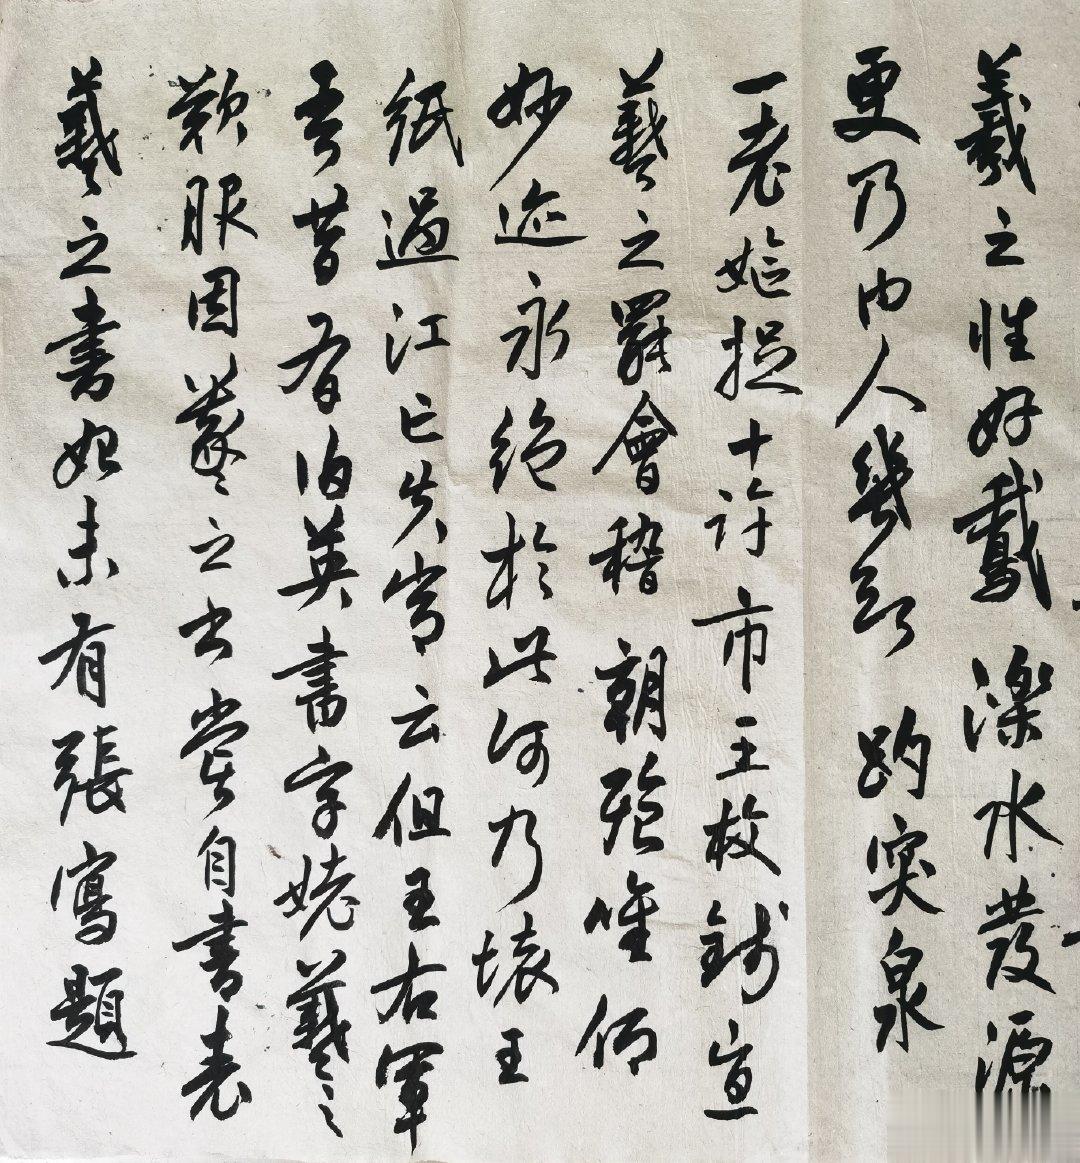 羲之性好鵞濼水發源
更乃人趵突泉
一老嫗捉十許市王枚錢宣
羲之罷會稽朝殆唯仰
妙迹永絕於此何乃壞王
紙過江亡失常云但王右軍
吾昔有伯英書字姥羲之
歎服因羲之書嘗自書表
羲之書始未有張寫題